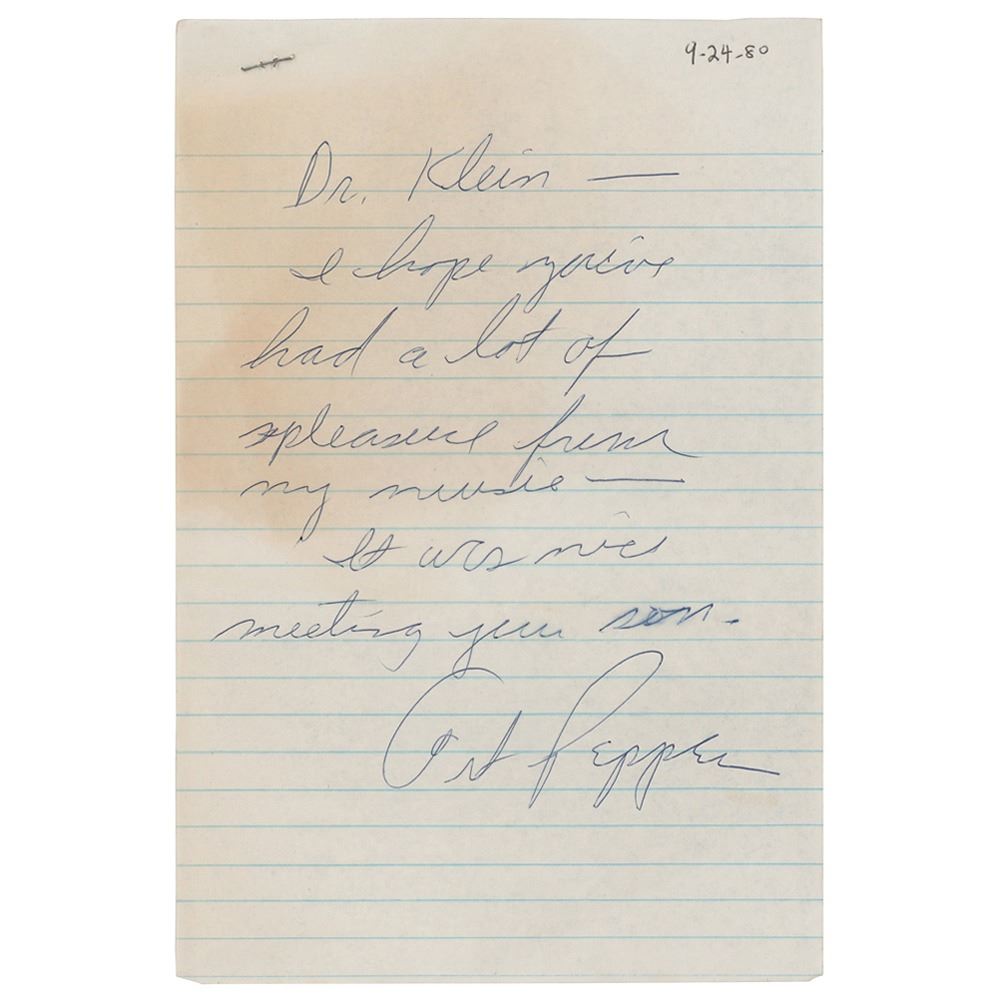 9-24-80
Dr. Klein —
I hope you've
had a lot of
pleasure from
my music —
It was nice
meeting your son.
Art Pepper